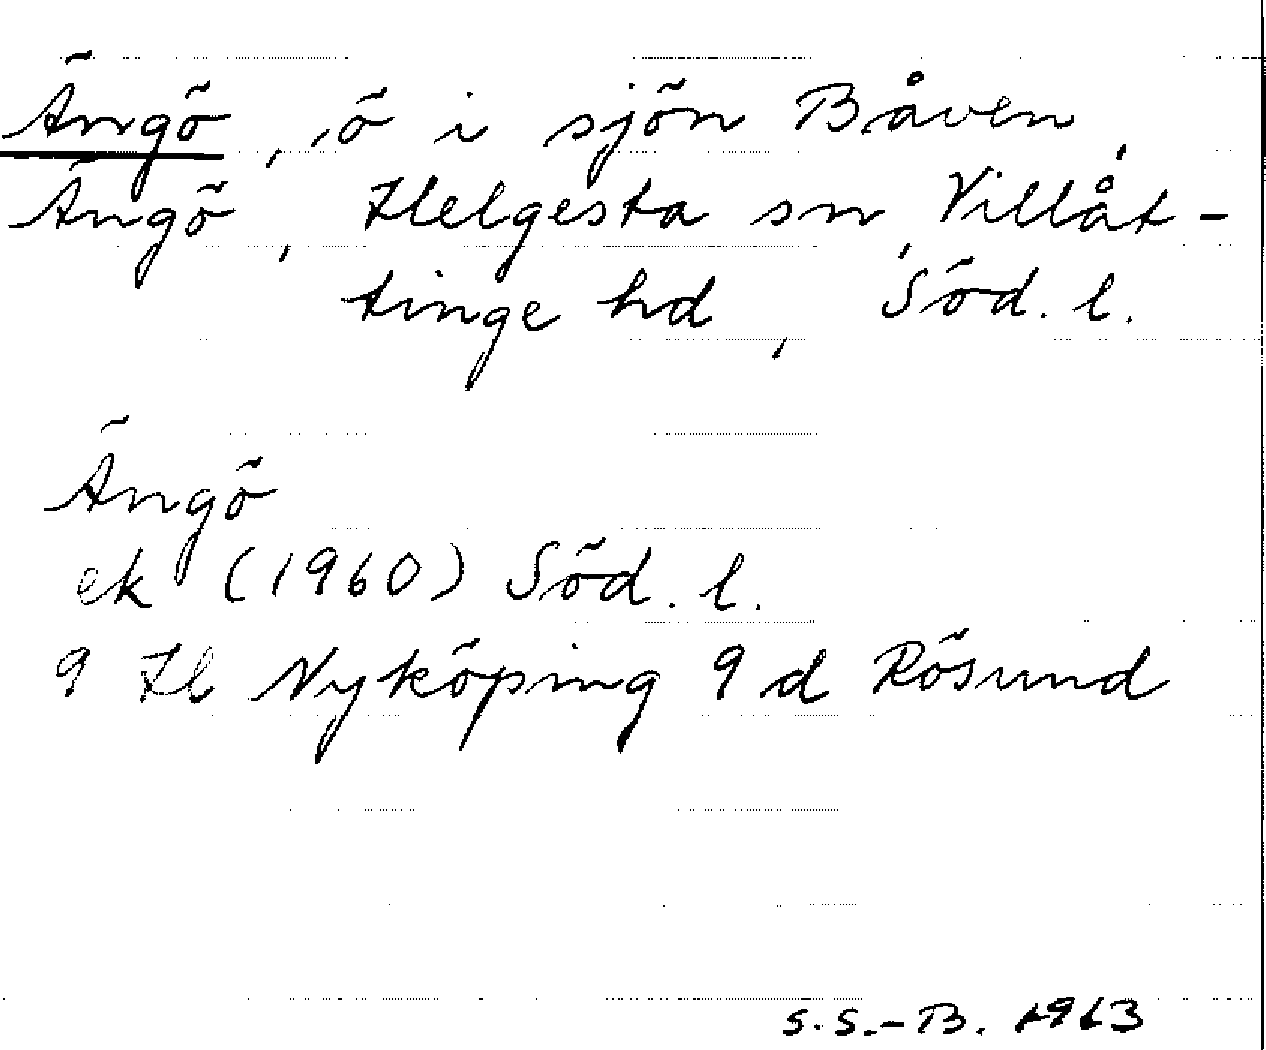 Ängö, ö i sjön Båven,
Ängö, Helgesta sn, Villåt-
tinge hd, Söd. l.
Ängö
ek (1960) Söd. l.
9 H Nyköping 9 d Rösund
S.S.-B. 1963